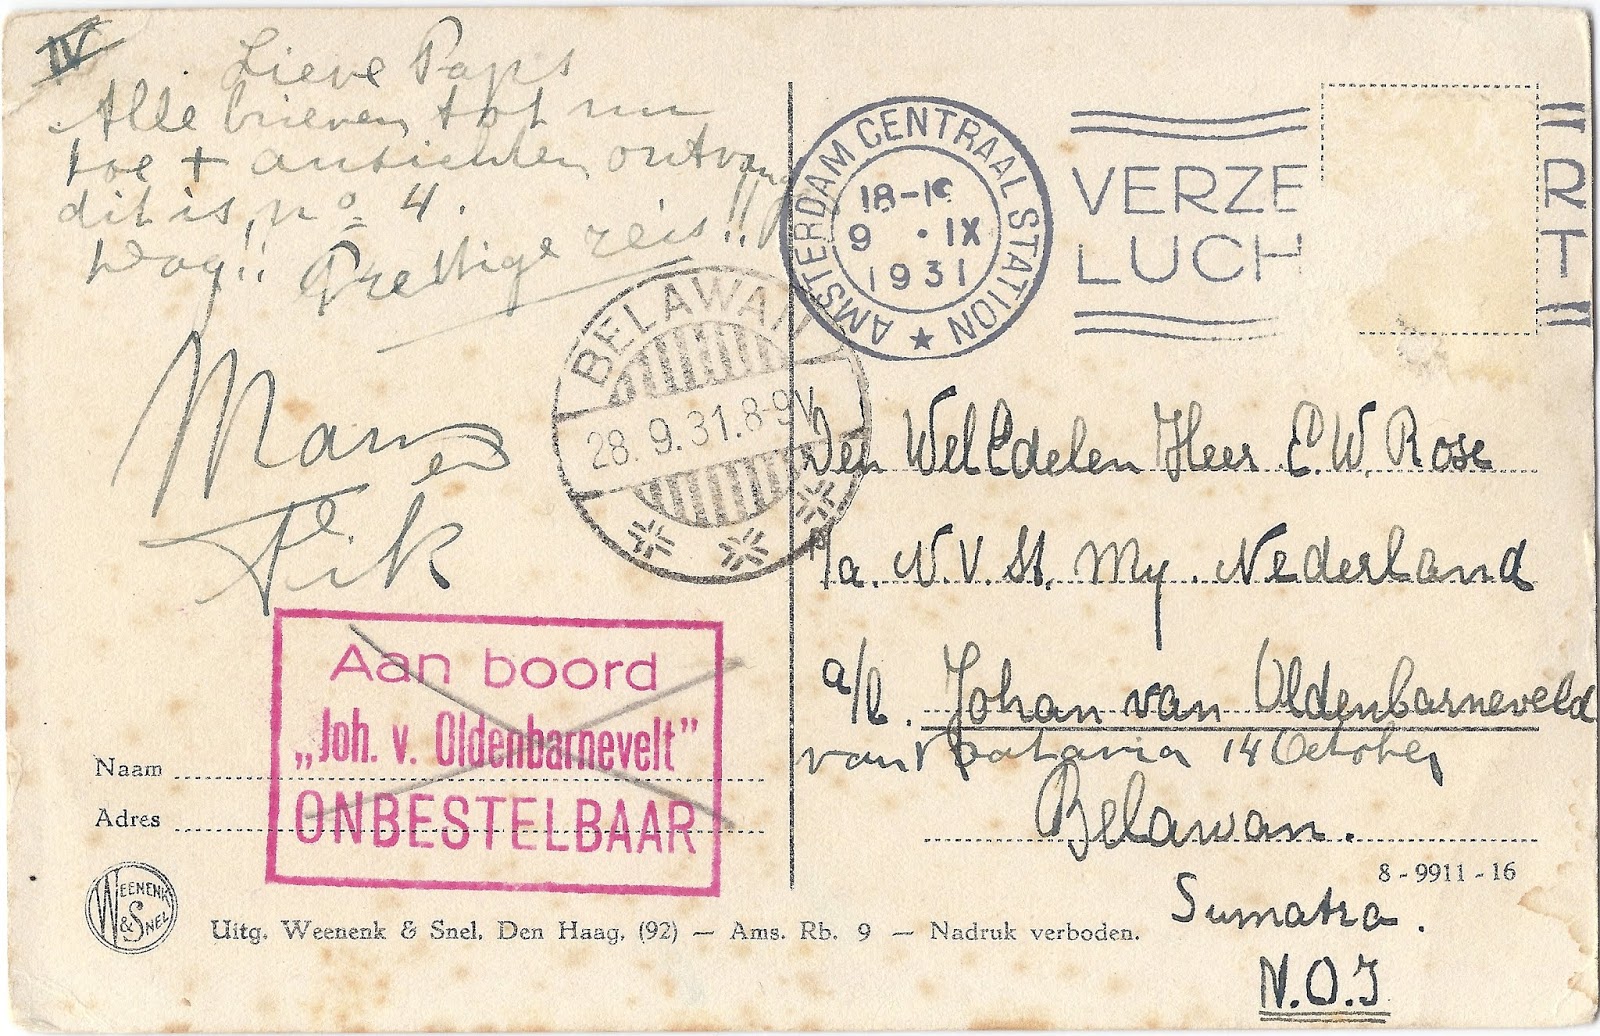 IV
Lieve Paps
Alle brieven tot nu
toe + ansichten ontvang
dit is no 4.
Dag!! Prettige reis!!
Mam
en
Fik
AMSTERDAM CENTRAAL STATION
18-19
9 · IX
1931
VERZE RT
LUCH T
BELAWAN
28.9.31.8-9V
Den WelEdelen Heer E.W. Rose
/a. N.V. St. My. Nederland
a/b. Johan van Oldenbarneveld
van Batavia 14 October
Belawan.
8-9911-16
Sumatra.
N.O.I
Aan boord
„Joh. v. Oldenbarnevelt”
ONBESTELBAAR
Naam
Adres
WEENENK & SNEL
Uitg. Weenenk & Snel, Den Haag, (92) — Ams. Rb. 9 — Nadruk verboden.